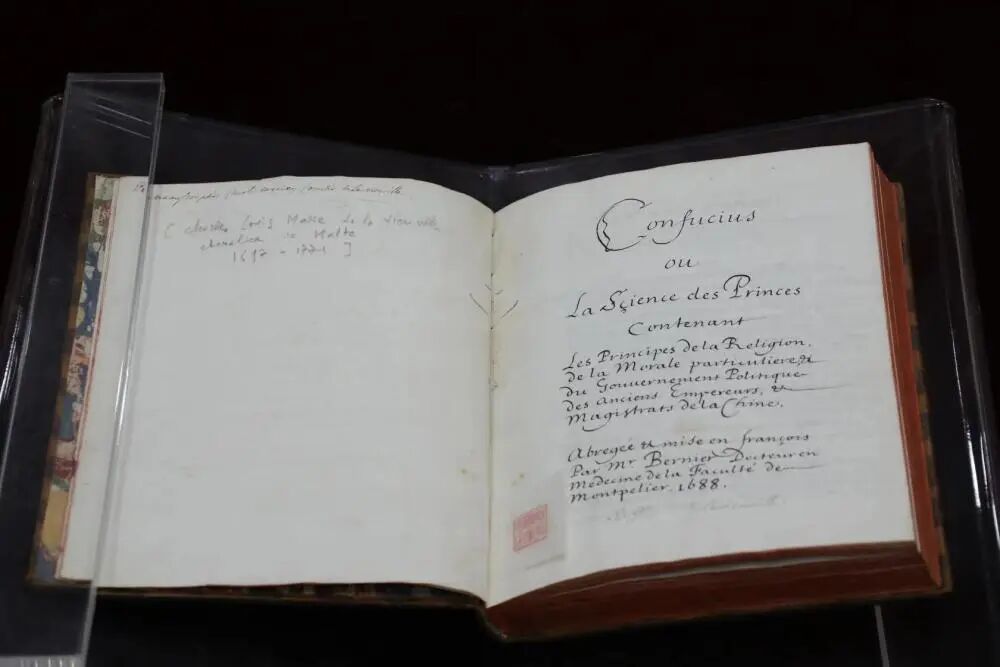 ( Charles Louis Marie de la Vieuville
chevalier de Malte
1697 - 1771 ]
Confucius
ou
La Sçience des Princes
Contenant
Les Principes de la Religion,
de la Morale particuliere, &
du Gouvernement Politique
des Anciens Empereurs, &
Magistrats de la Chine.
Abregée & mise en françois
Par Mr. Bernier Docteur en
Medecine de la Faculté de
Montpelier. 1688.